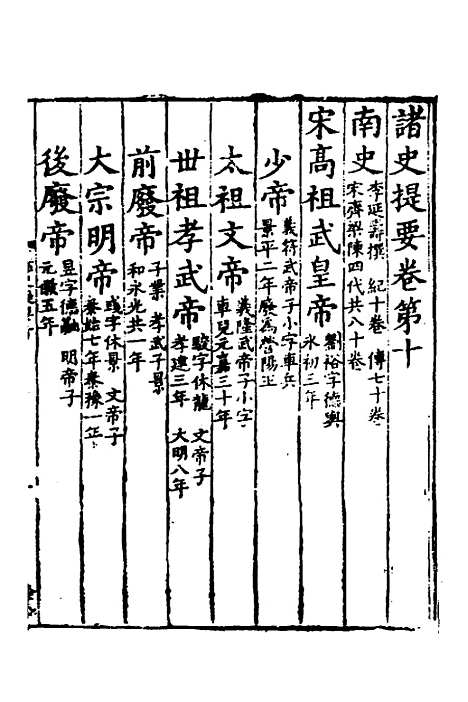 諸史提要卷第十
南史 李延壽撰 紀十卷 傳七十卷
宋齊梁陳四代共八十卷
宋高祖武皇帝 劉裕字德輿
永初三年
少帝 義符武帝子小字車兵
景平二年廢爲營陽王
太祖文帝 義隆武帝子小字
車兒元嘉三十年
世祖孝武帝 駿字休龍 文帝子
孝建三年 大明八年
前廢帝 子業 孝武子景
和永光共一年
太宗明帝 彧字休景 文帝子
泰始七年泰豫一年
後廢帝 昱字德融 明帝子
元徽五年